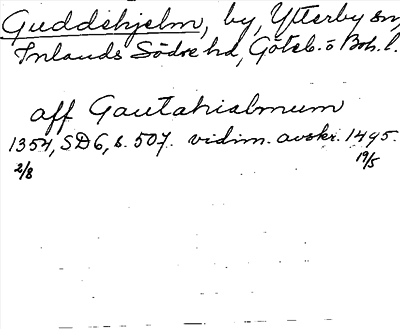 Guddehjelm, by, Ytterby sn,
Inlands Södre hd, Göteb. o Boh. l.
aff Gautahialmum
1354, SD6, s. 507. vidim. avskr. 1495.
2/8 19/5